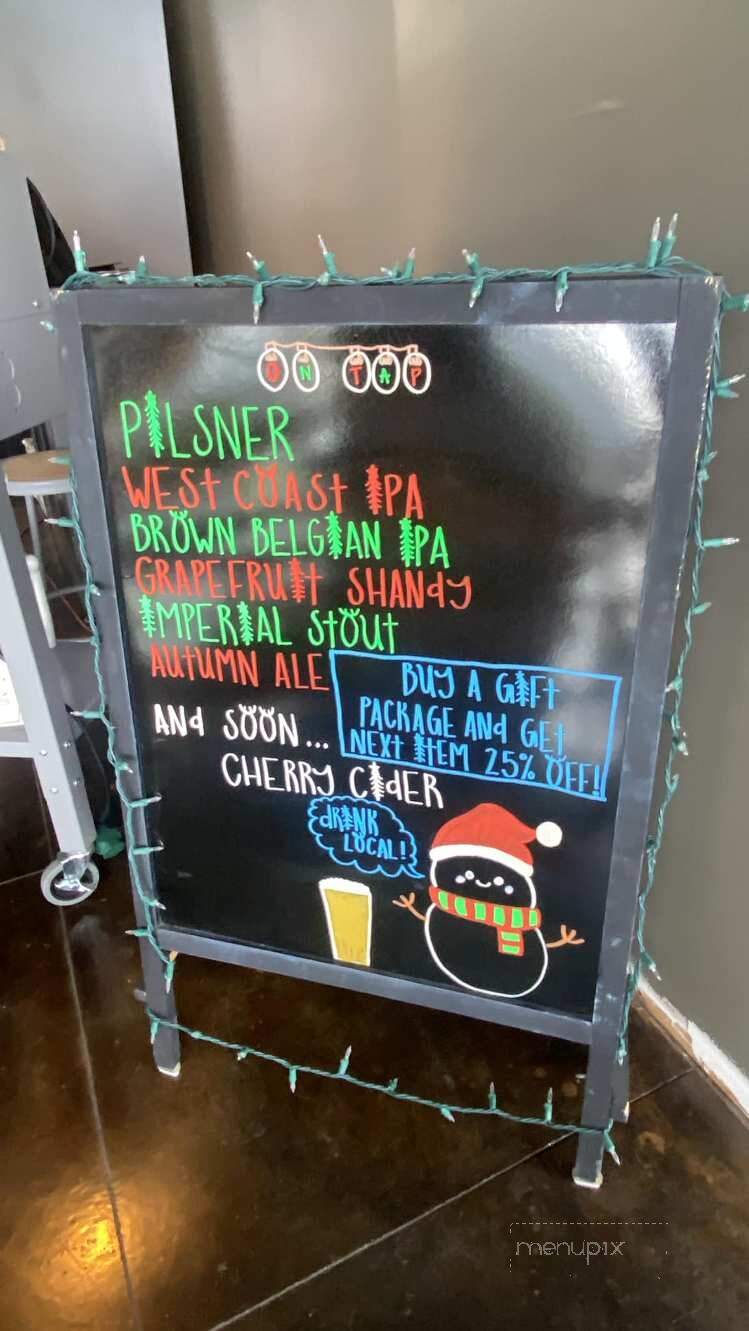 ON TAP
PILSNER
WEST COAST IPA
BROWN BELGIAN IPA
GRAPEFRUIT SHANDY
IMPERIAL STOUT
AUTUMN ALE
BUY A GIFT
PACKAGE AND GET
NEXT ITEM 25% OFF!
AND SOON...
CHERRY CIDER
DRINK
LOCAL!
menupix